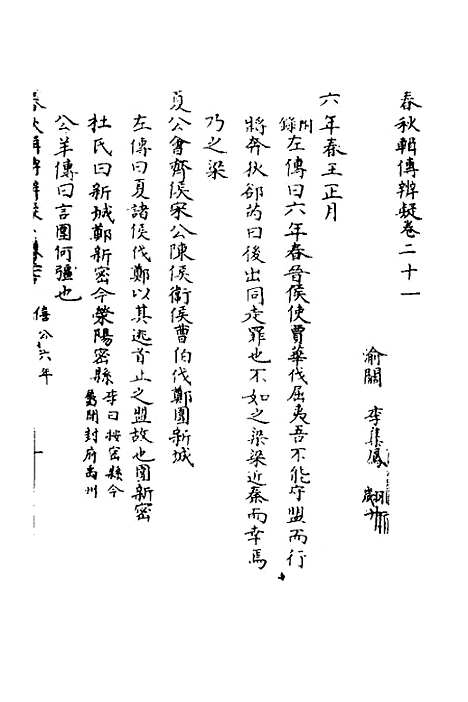 春秋輯傳辨疑卷二十一
渝關 李集鳳 翽升
六年春王正月
附錄左傳曰六年春晉侯使賈華伐屈夷吾不能守盟而行
將奔狄郤芮曰後出同走罪也不如之梁梁近秦而幸焉
乃之梁
夏公會齊侯宋公陳侯衛侯曹伯伐鄭圍新城
左傳曰夏諸侯伐鄭以其逃首止之盟故也圍新密
杜氏曰新城鄭新密今滎陽密縣 李曰按密縣今屬開封府禹州
公羊傳曰言圍何彊也
春秋輯傳辨疑
僖公六年